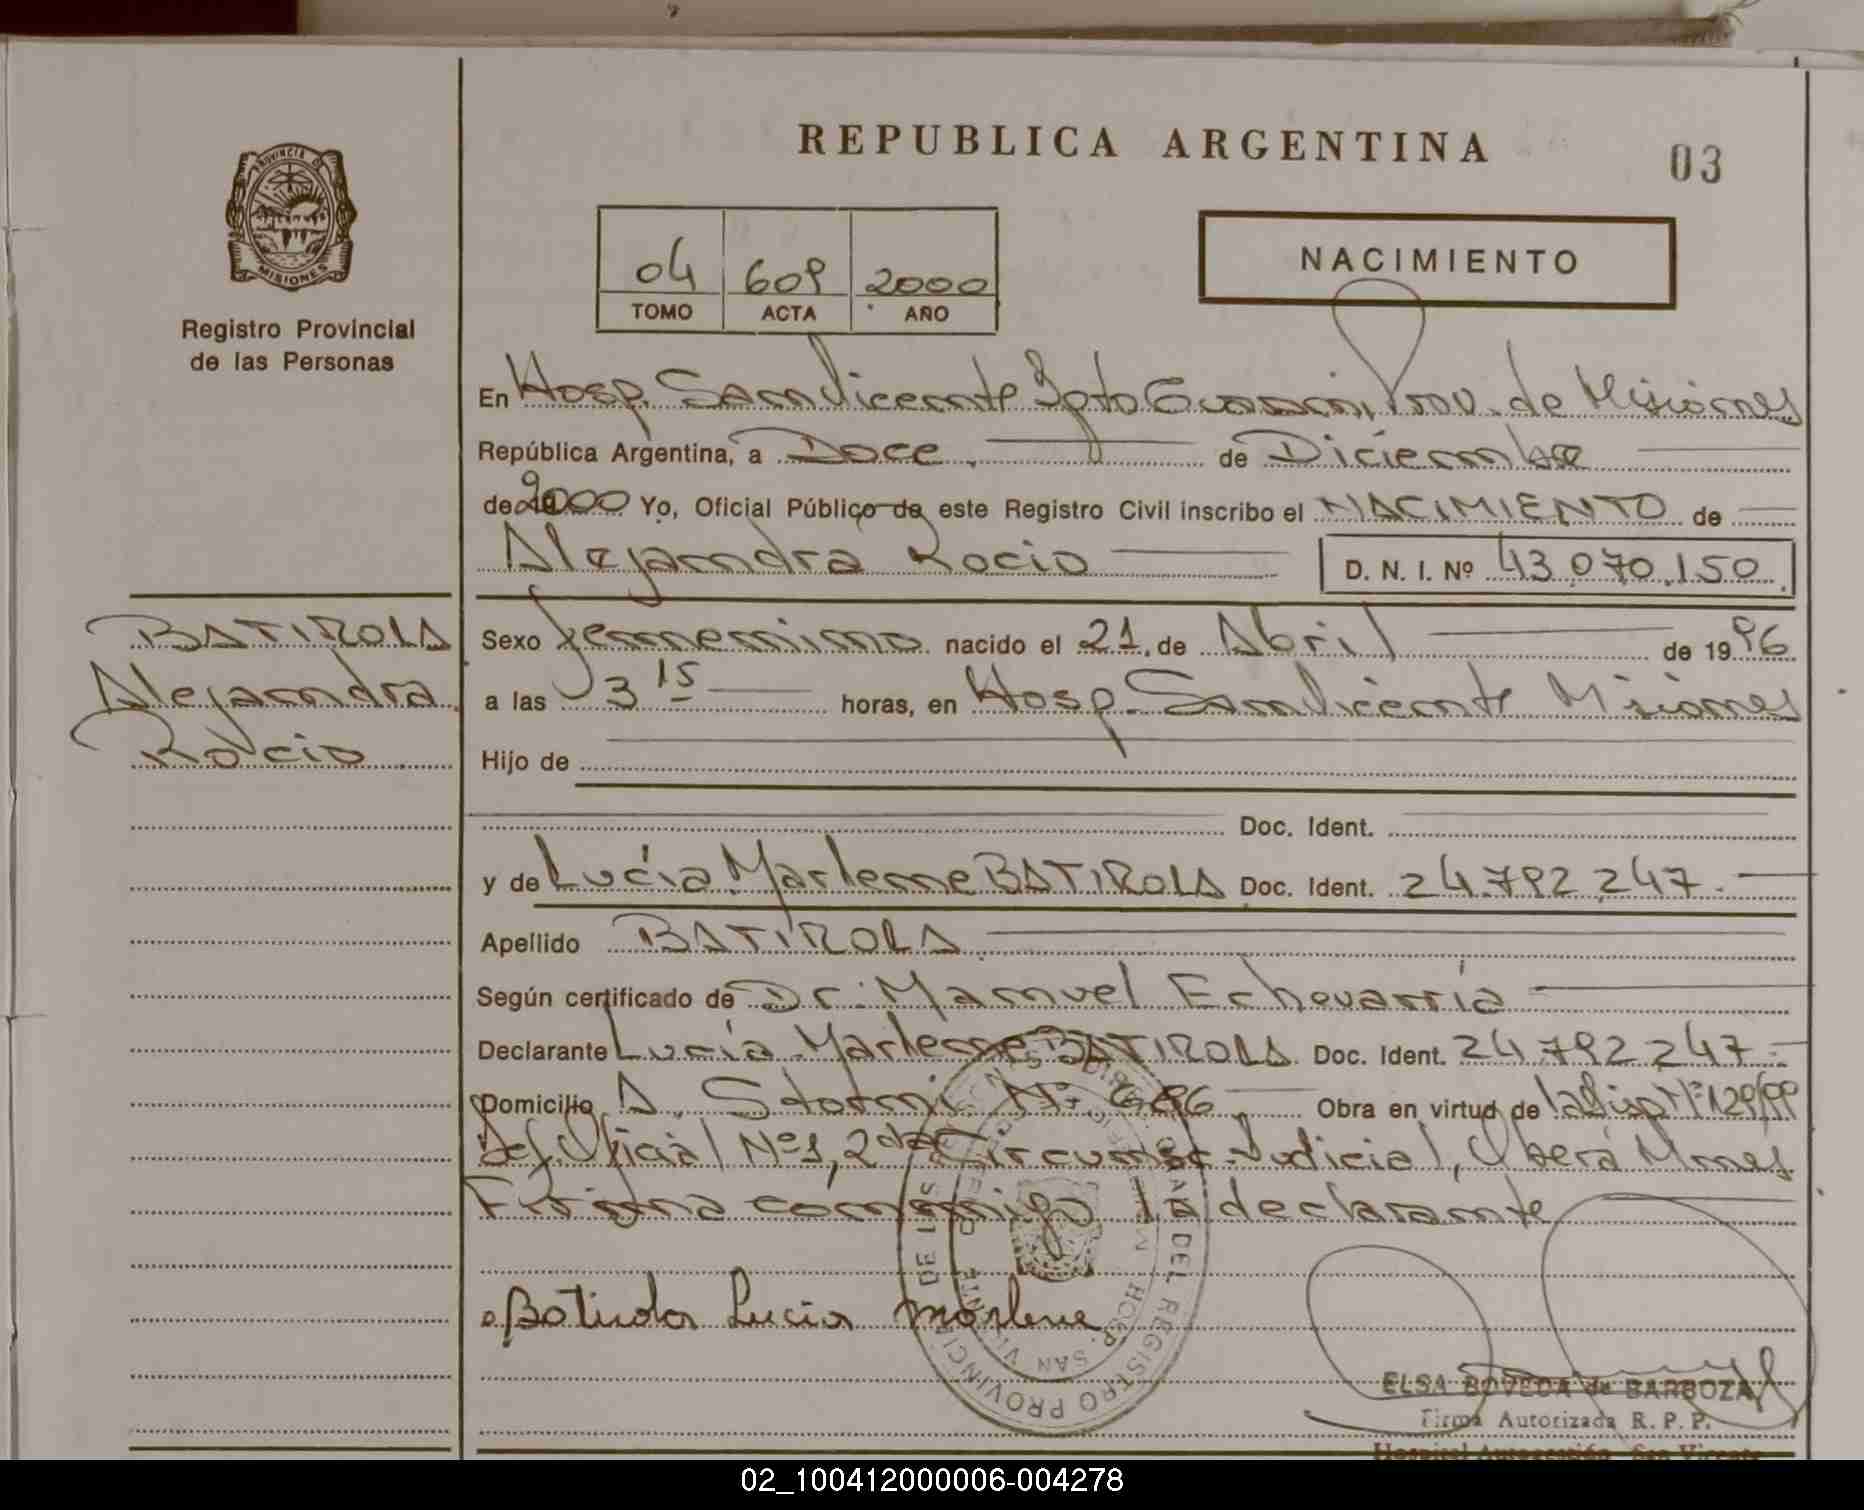 REPUBLICA ARGENTINA
03
PROVINCIA DE
MISIONES
Registro Provincial
de las Personas
04 609 2000
TOMO ACTA AÑO
NACIMIENTO
En Hosp. San Vicente Dpto Guarani, Prov. de Misiones
República Argentina, a Doce de Diciembre
de 2000 Yo, Oficial Público de este Registro Civil inscribo el NACIMIENTO de
Alejandra Rocio D. N. I. Nº 43.070.150
BATIROLA
Alejandra
Rocio
Sexo femenino nacido el 21 de Abril de 1996
a las 3 15 horas, en Hosp. San Vicente Misiones
Hijo de
Doc. Ident.
y de Lucía Marlene BATIROLA Doc. Ident. 24.792.247.
Apellido BATIROLA
Según certificado de Dr. Manuel Echevarría
Declarante Lucía Marlene BATIROLA Doc. Ident. 24.792.247
Domicilio A. Storni Nº 696 Obra en virtud de la Disp Nº 129/99
Def. Oficial Nº1, 2da Circunsc. Judicial, Oberá Mnes
Firma conmigo la declarante
Batirola Lucia Marlene
DEL REGISTRO PROVINCIAL DE
HOSP. SAN VICENTE
ELSA BOVEDA de BARBOZA
Firma Autorizada R. P. P.
Hospital Autogestión San Vicente
02_100412000006-004278